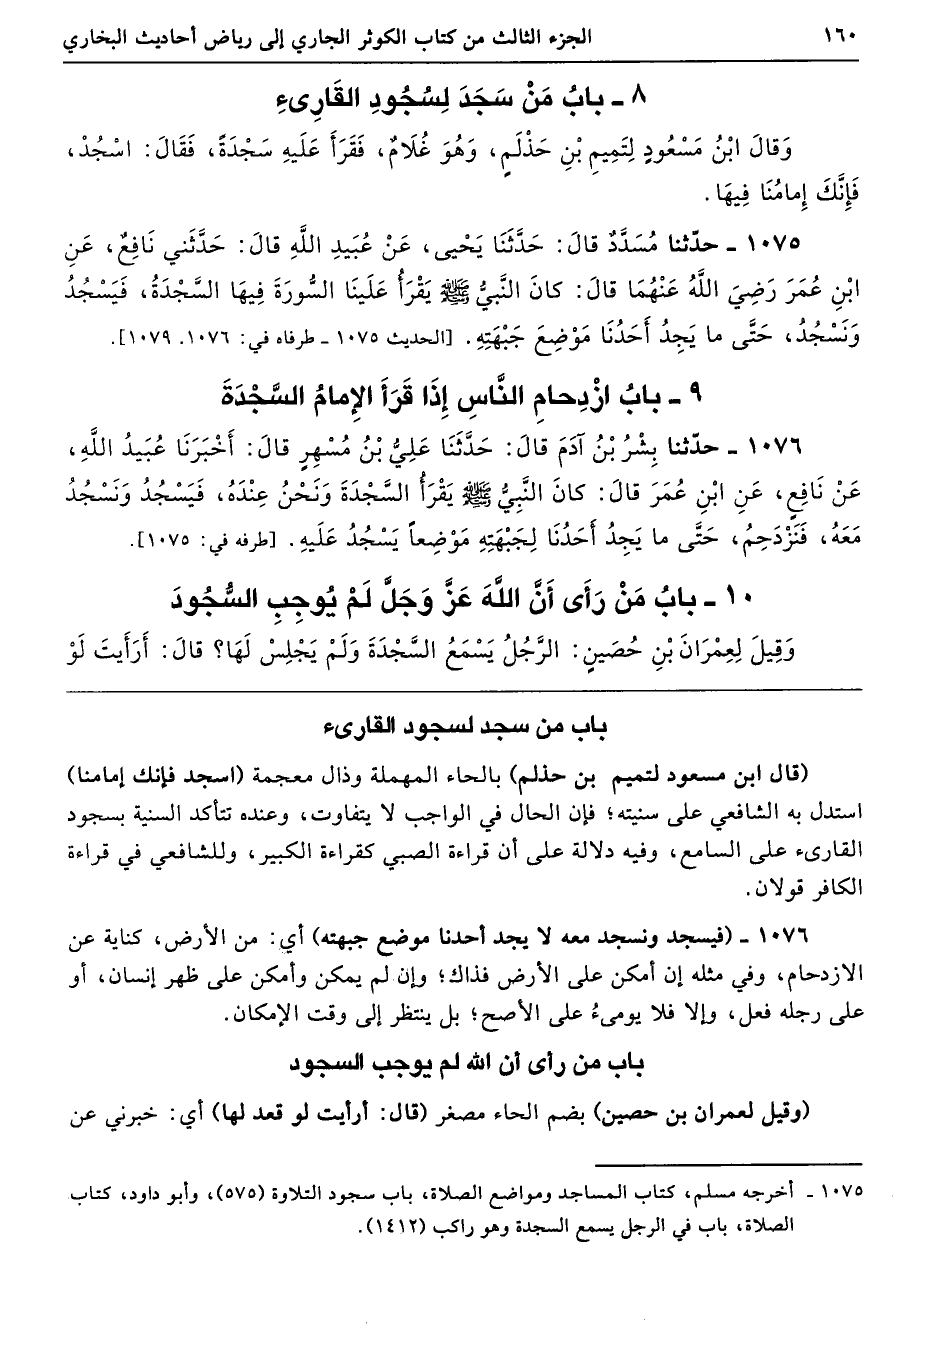 ١٦٠ الجزء الثالث من كتاب الكوثر الجاري إلى رياض أحاديث البخاري
٨ ـ بابُ مَنْ سَجَدَ لِسُجُودِ القَارِىءِ
وَقالَ ابْنُ مَسْعُودٍ لِتَمِيمِ بْنِ حَذْلَمٍ، وَهُوَ غُلَامٌ، فَقَرَأَ عَلَيهِ سَجْدَةً، فَقَالَ: اسْجُدْ،
فَإِنَّكَ إِمامُنَا فِيهَا.
١٠٧٥ ـ حدّثنا مُسَدَّدٌ قالَ: حَدَّثَنَا يَحْيى، عَنْ عُبَيدِ اللَّهِ قالَ: حَدَّثَني نَافِعٌ، عَنِ
ابْنِ عُمَرَ رَضِيَ اللَّهُ عَنْهُمَا قالَ: كانَ النَّبِيُّ ﷺ يَقْرَأُ عَلَينَا السُّورَةَ فِيهَا السَّجْدَةُ، فَيَسْجُدُ
وَنَسْجُدُ، حَتَّى ما يَجِدُ أَحَدُنَا مَوْضِعَ جَبْهَتِهِ. [الحديث ١٠٧٥ ـ طرفاه في: ١٠٧٦، ١٠٧٩].
٩ ـ بابُ ازْدِحامِ النَّاسِ إِذَا قَرَأَ الإِمامُ السَّجْدَةَ
١٠٧٦ ـ حدّثنا بِشْرُ بْنُ آدَمَ قالَ: حَدَّثَنَا عَلِيُّ بْنُ مُسْهِرٍ قالَ: أَخْبَرَنَا عُبَيدُ اللَّهِ،
عَنْ نَافِعٍ، عَنِ ابْنِ عُمَرَ قالَ: كانَ النَّبِيُّ ﷺ يَقْرَأُ السَّجْدَةَ وَنَحْنُ عِنْدَهُ، فَيَسْجُدُ وَنَسْجُدُ
مَعَهُ، فَنَزْدَحِمُ، حَتَّى ما يَجِدُ أَحَدُنَا لِجَبْهَتِهِ مَوْضِعاً يَسْجُدُ عَلَيهِ. [طرفه في: ١٠٧٥].
١٠ ـ بابُ مَنْ رَأَى أَنَّ اللَّهَ عَزَّ وَجَلَّ لَمْ يُوجِبِ السُّجُودَ
وَقِيلَ لِعِمْرَانَ بْنِ حُصَينٍ: الرَّجُلُ يَسْمَعُ السَّجْدَةَ وَلَمْ يَجْلِسْ لَهَا؟ قالَ: أَرَأَيتَ لَوْ
باب من سجد لسجود القارىء
(قال ابن مسعود لتميم بن حذلم) بالحاء المهملة وذال معجمة (اسجد فإنك إمامنا)
استدل به الشافعي على سنيته؛ فإن الحال في الواجب لا يتفاوت، وعنده تتأكد السنية بسجود
القارىء على السامع، وفيه دلالة على أن قراءة الصبي كقراءة الكبير، وللشافعي في قراءة
الكافر قولان.
١٠٧٦ ـ (فيسجد ونسجد معه لا يجد أحدنا موضع جبهته) أي: من الأرض، كناية عن
الازدحام، وفي مثله إن أمكن على الأرض فذاك؛ وإن لم يمكن وأمكن على ظهر إنسان، أو
على رجله فعل، وإلا فلا يومىءُ على الأصح؛ بل ينتظر إلى وقت الإمكان.
باب من رأى أن الله لم يوجب السجود
(وقيل لعمران بن حصين) بضم الحاء مصغر (قال: أرأيت لو قعد لها) أي: خبرني عن
١٠٧٥ ـ أخرجه مسلم، كتاب المساجد ومواضع الصلاة، باب سجود التلاوة (٥٧٥)، وأبو داود، كتاب
الصلاة، باب في الرجل يسمع السجدة وهو راكب (١٤١٢).